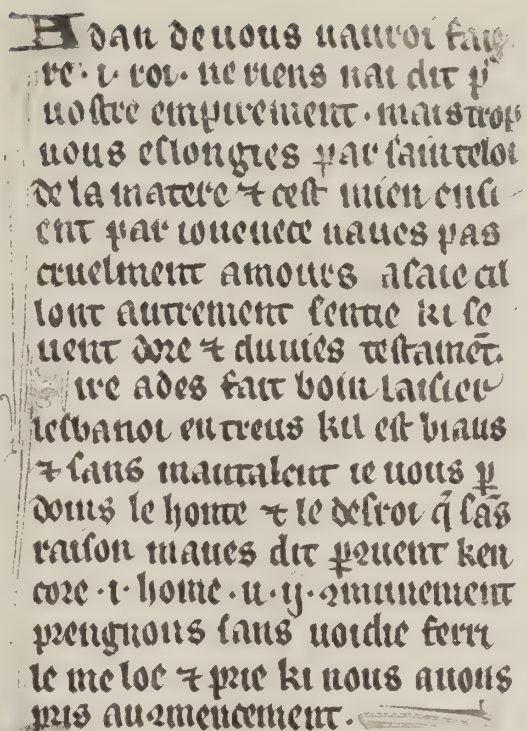 Adan de uous uauroi fai
re · i · roi · ne riens nai dit p'
uostre empirement · mais trop
uous eslongies par sainte loi
de la matere ⁊ cest mien ensi
ent par iouenece naues pas
cruelment amours asaie cil
lont autrement sentie ki se
uent dore ⁊ duuies testamēt.
Sire ades fait boin laisier
lesbanoi entreus kil est biaus
⁊ sans mautalent ie uous ꝑ
doins le honte ⁊ le desroi q̄ sās
raison maues dit ꝑquent ken
core · i · home · u · ij · ꝯmunement
prengnons sans uoidie ferri
le me loe ⁊ prie ki nous auons
pris au ꝯmencement.